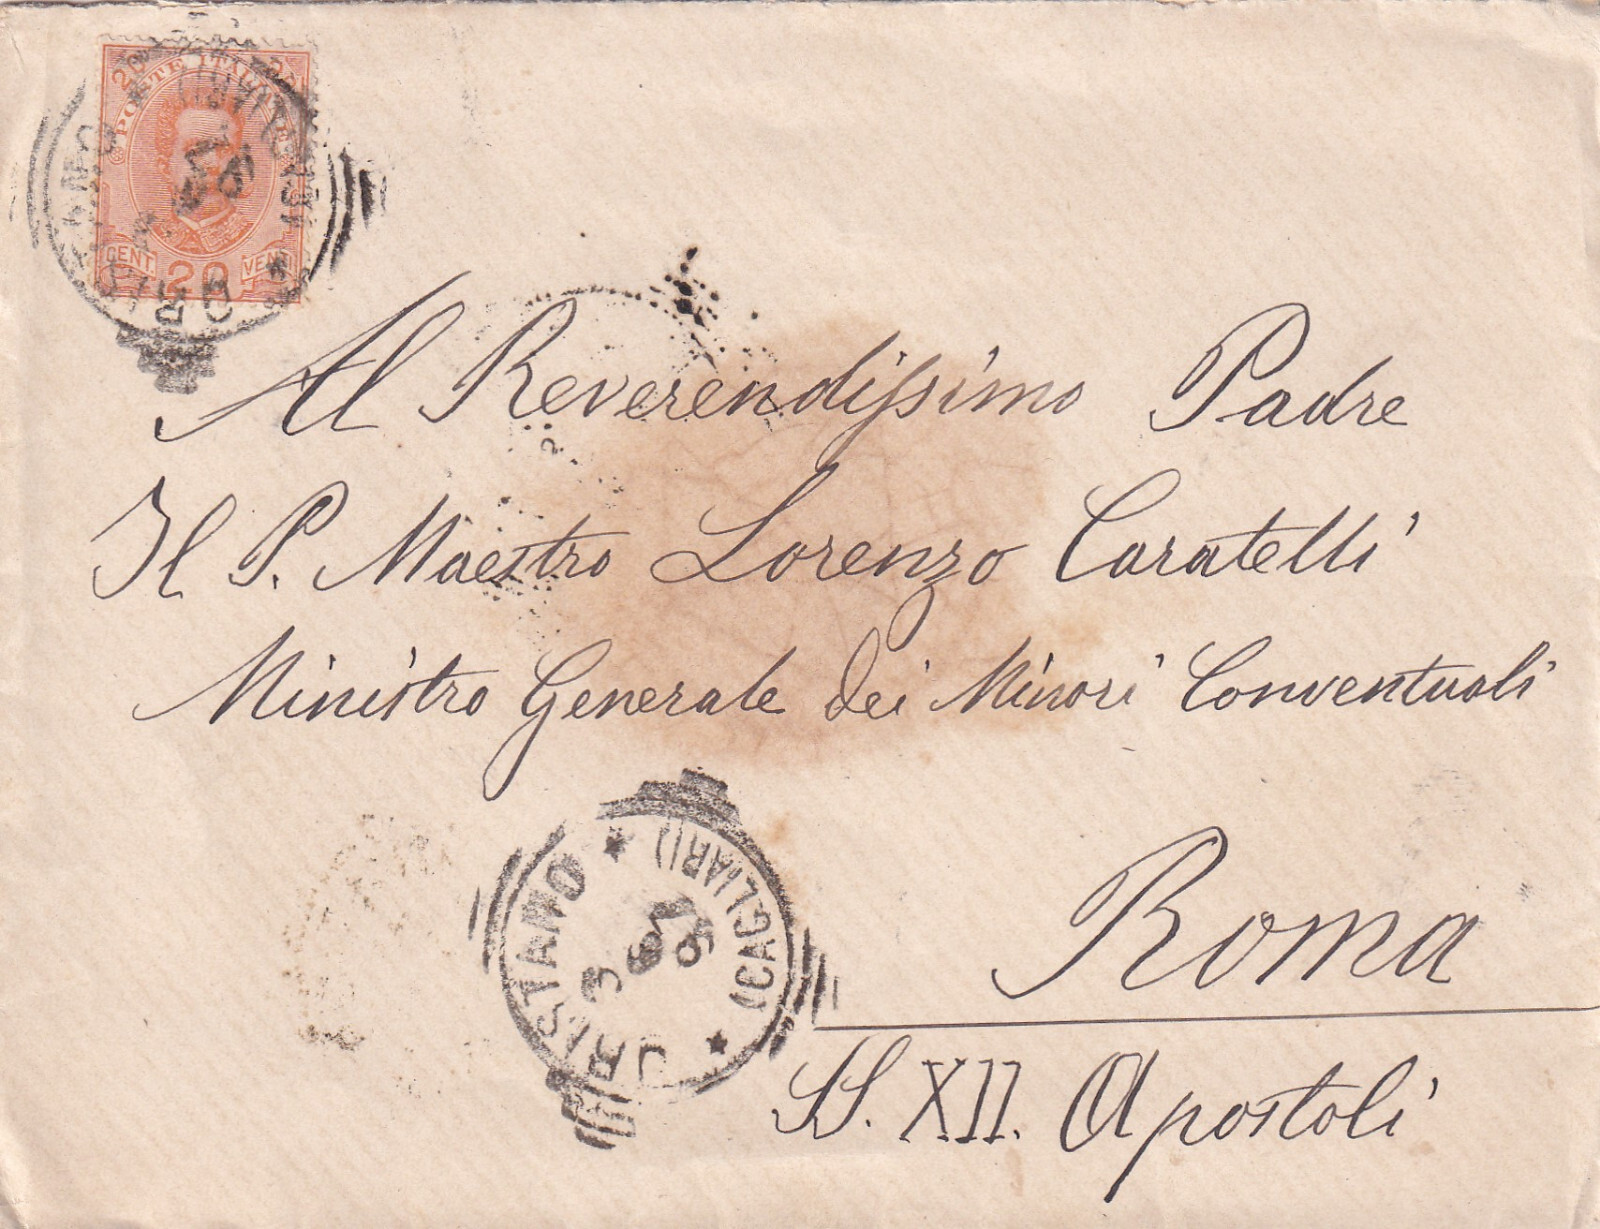 POSTE ITALIANE
20
CENT. 20 VENTI
Al Reverendissimo Padre
Il P. Maestro Lorenzo Caratelli
Ministro Generale dei Minori Conventuali
ORISTANO
(CAGLIARI)
3
97
Roma
SS. XII. Apostoli